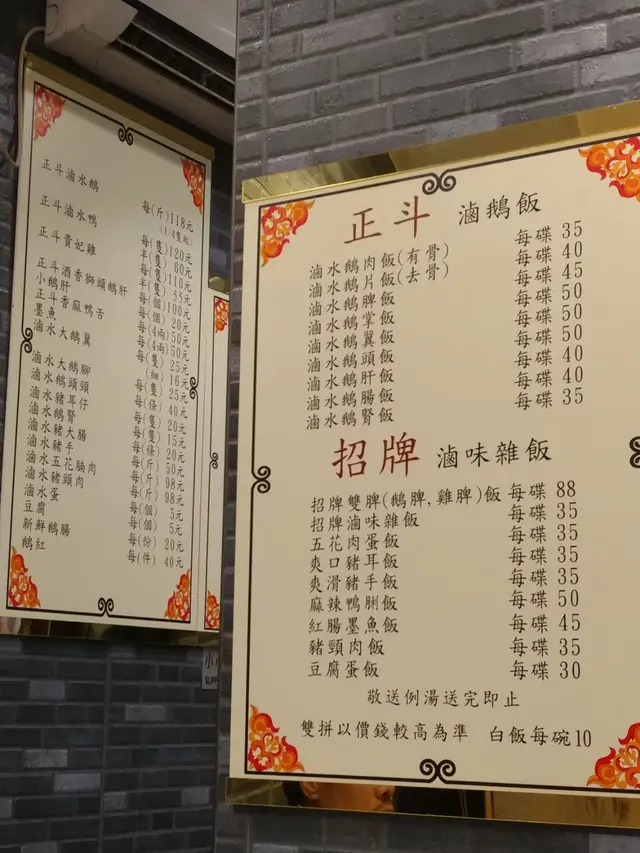 正斗滷水鵝
正斗滷水鴨
正斗貴妃雞
正斗酒香獅頭鵝肝
小鵝肝
正斗香麻鴨舌
墨魚
滷水大鵝翼
滷水大鵝腳
滷水鵝頭頸
滷水豬耳仔
滷水鵝腎
滷水豬大腸
滷水豬手
滷水五花腩肉
滷水豬頸肉
滷水蛋
豆腐
新鮮鵝腸
鵝紅
每(斤)118元
(1/4隻起)
每(隻)120元
半(隻) 60元
每(隻)110元
半(隻) 55元
每(個)100元
每(個) 20元
每(4兩)50元
每(4兩)50元
每(隻) 25元
(細) 16元
每(隻) 25元
每(條) 40元
每(隻) 20元
每(隻) 15元
每(條) 20元
每(斤) 50元
每(斤) 98元
每(斤) 98元
每(個) 5元
每(個) 5元
每(份) 20元
每(件) 40元
正斗 滷鵝飯
滷水鵝肉飯(有骨) 每碟 35
滷水鵝片飯(去骨) 每碟 40
滷水鵝脾飯 每碟 45
滷水鵝掌飯 每碟 50
滷水鵝翼飯 每碟 50
滷水鵝頭飯 每碟 50
滷水鵝肝飯 每碟 40
滷水鵝腸飯 每碟 40
滷水鵝腎飯 每碟 35
招牌 滷味雜飯
招牌雙脾(鵝脾,雞脾)飯 每碟 88
招牌滷味雜飯 每碟 35
五花肉蛋飯 每碟 35
爽口豬耳飯 每碟 35
爽滑豬手飯 每碟 35
麻辣鴨脷飯 每碟 50
紅腸墨魚飯 每碟 45
豬頸肉飯 每碟 35
豆腐蛋飯 每碟 30
敬送例湯送完即止
雙拼以價錢較高為準 白飯每碗10